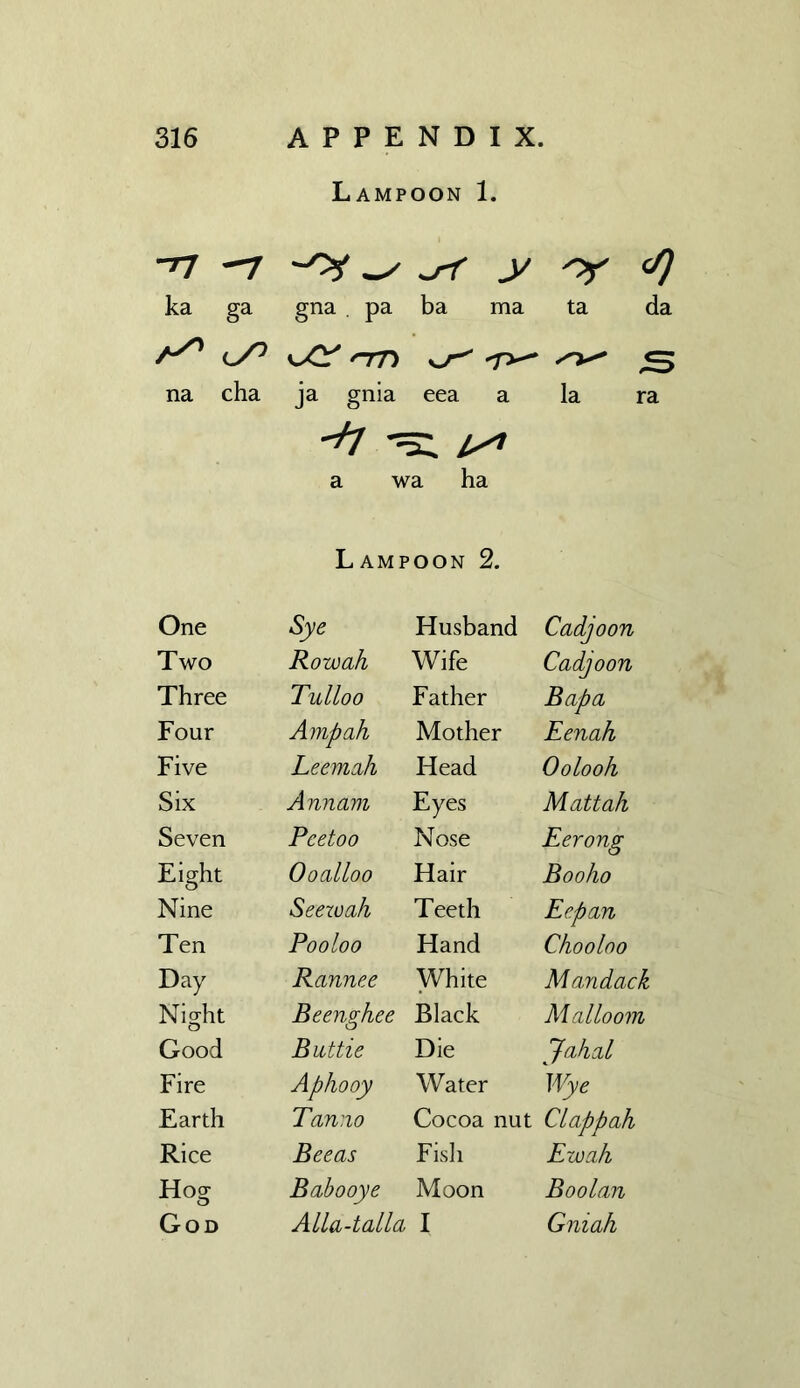 316 APPENDIX.
LAMPOON 1.
ka ga gna pa ba ma ta da
na cha ja gnia eea a la ra
a wa ha
LAMPOON 2.
One Sye Husband Cadjoon
Two Rowah Wife Cadjoon
Three Tulloo Father Bapa
Four Ampah Mother Eenah
Five Leemah Head Oolooh
Six Annam Eyes Mattah
Seven Peetoo Nose Eerong
Eight Ooalloo Hair Booho
Nine Seewah Teeth Eepan
Ten Pooloo Hand Chooloo
Day Rannee White Mandack
Night Beenghee Black Malloom
Good Buttie Die Jahal
Fire Aphooy Water Wye
Earth Tanno Cocoa nut Clappah
Rice Beeas Fish Ewah
Hog Babooye Moon Boolan
GOD Alla-talla I Gniah